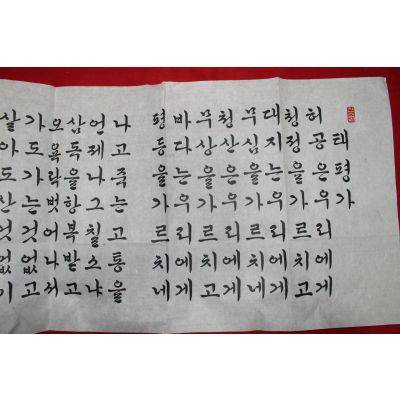 태평가
허공은우리에게
청정을가르치고
대지는우리에게
무심을가르치네
청산은우리에게
무상을가르치고
바다는우리에게
평등을가르치네
나고죽는고통을
언제나그칠스냐
삼독을항복받고
오욕락벗어나서
가도가는것없고
살아도산것없이